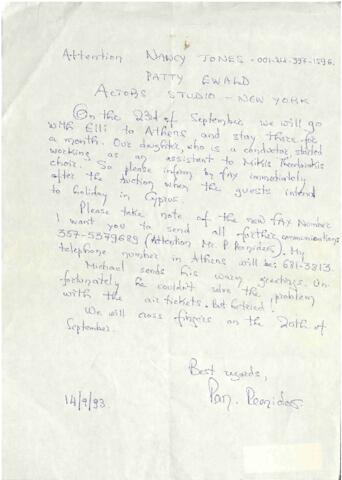 Attention NANCY JONES - 001-212-397-1596
PATTY EWALD
ACTORS STUDIO - NEW YORK
On the 23rd of September we will go
with Elli to Athens and stay there for
a month. Our daughter, who is a conductor, started
working as an assistant to Mikis Theodorakis
choir. So please inform by fax immediately
after the auction when the guests intend
to holiday in Cyprus.
Please take note of the new FAX Number
I want you to send all further communications
357-5379689 (Attention Mr. P. Peonides). My
telephone number in Athens will be: 681-3813.
Michael sends his warm greetings. Un-
fortunately he couldn't solve the problem
with the air tickets. But he tried!
We will cross fingers on the 20th of
September.
Best regards,
Pan. Peonides.
14/9/93.